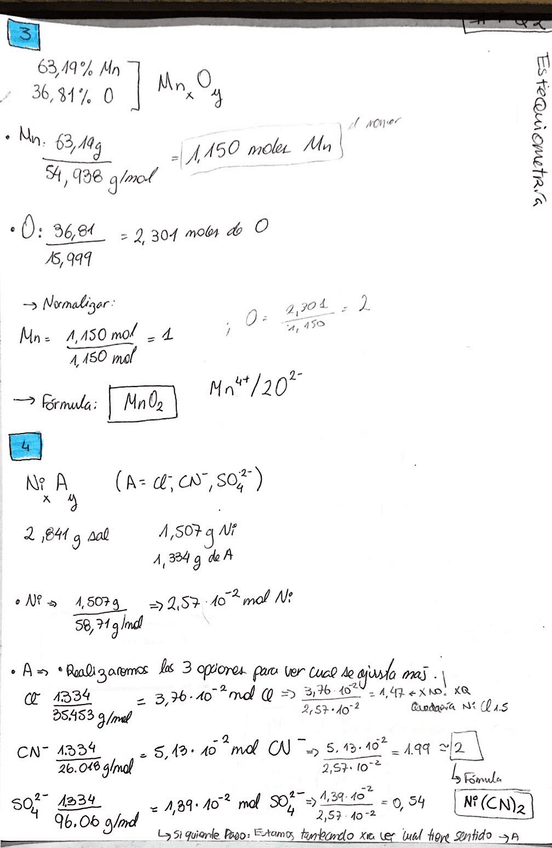 Estequiometría
3
63,19% Mn
36,81% O ] MnxOy
• Mn: 63,19g / 54,938 g/mol = 1,150 moles Mn el menor
• O: 36,81 / 15,999 = 2,301 moles de O
→ Normalizar:
Mn = 1,150 mol / 1,150 mol = 1 ; O = 2,301 / 1,150 = 2
→ Fórmula: MnO₂ Mn⁴⁺/2O²⁻
4
NixAy (A = Cl⁻, CN⁻, SO₄²⁻)
2,841 g sal 1,507 g Ni
1,334 g de A
• Ni ⇒ 1,507g / 58,71 g/mol ⇒ 2,57·10⁻² mol Ni
• A ⇒ • Realizaremos las 3 opciones para ver cual se ajusta mas.
Cl⁻ 1.334 / 35.453 g/mol = 3,76·10⁻² mol Cl ⇒ 3,76·10⁻² / 2,57·10⁻² = 1,47 ← x NO. xq
Quedaría NiCl1.5
CN⁻ 1.334 / 26.018 g/mol = 5,13·10⁻² mol CN⁻ ⇒ 5,13·10⁻² / 2,57·10⁻² = 1.99 ≈ 2
↳ Fórmula
SO₄²⁻ 1334 / 96.06 g/mol = 1,39·10⁻² mol SO₄²⁻ ⇒ 1,39·10⁻² / 2,57·10⁻² = 0,54 Ni(CN)₂
↳ Siguiente Paso: Estamos tanteando xra ver cual tiene sentido → A